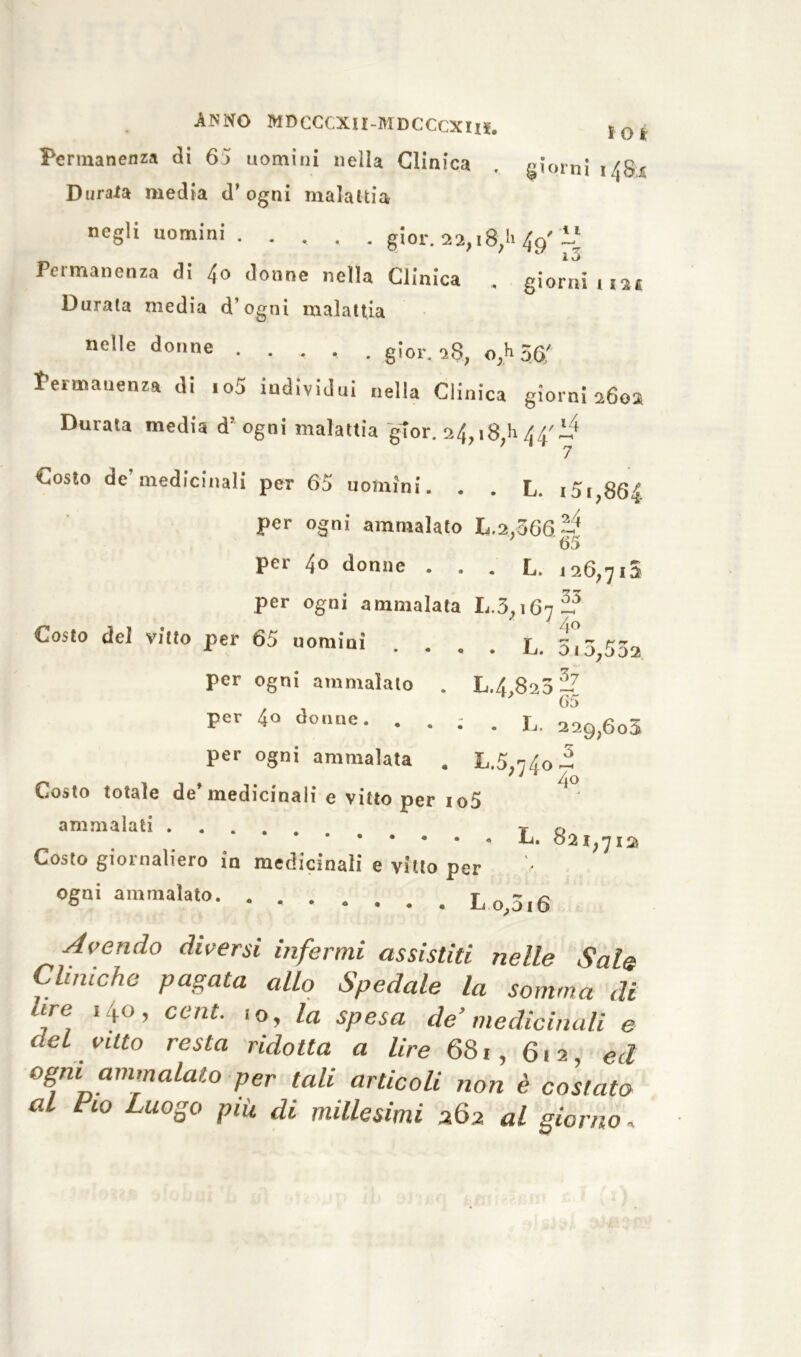 ANNO MDCCCXII-MDCCCXIII. 101
Permanenza di 65 uomini nella Clinica . giorni 1481
Durata media d'ogni malattia
negli uomini . . . . . gior. 22,18,h 49' 11/13
Permanenza di 40 donne nella Clinica . giorni 1121
Durata media d'ogni malattia
nelle donne . . . . . gior. 28, 0,h 36'
Permanenza di 105 individui nella Clinica giorni 2602
Durata media d'ogni malattia gior. 24,18,h 44' 14/7
Costo de' medicinali per 65 uomini. . . L. 151,864
per ogni ammalato L.2,366 24/65
per 40 donne . . . L. 126,713
per ogni ammalata L.3,167 33/40
Costo del vitto per 65 uomini . . . . L. 313,532
per ogni ammalato . L.4,823 37/65
per 40 donne. . . : . L. 229,603
per ogni ammalata . L.5,740 3/40
Costo totale de' medicinali e vitto per 105
ammalati . . . . . . . . . . . L. 821,712
Costo giornaliero in medicinali e vitto per
ogni ammalato. . . . . . . . L 0,316
Avendo diversi infermi assistiti nelle Sale
Cliniche pagata allo Spedale la somma di
lire 140, cent. 10, la spesa de' medicinali e
del vitto resta ridotta a lire 681, 612, ed
ogni ammalato per tali articoli non è costato
al Pio Luogo più di millesimi 262 al giorno.